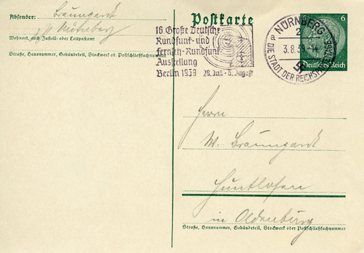 Absender: Braumgardt
z.Z. Nürnberg
Wohnort, auch Zustell- oder Leitpostamt
Straße, Hausnummer, Gebäudeteil, Stockwerk od. Postschließfachnummer
Postkarte
16. Große Deutsche
Rundfunk- und
Fernseh-Rundfunk
Ausstellung
Berlin 1939 28. Juli - 6. August
NÜRNBERG 2
a 3.8.39
DIE STADT DER REICHSPARTEITAGE
6
Deutsches Reich
Herrn
W. Braumgardt
Huntlosen
in Oldenburg
Straße, Hausnummer, Gebäudeteil, Stockwerk oder Postschließfachnummer